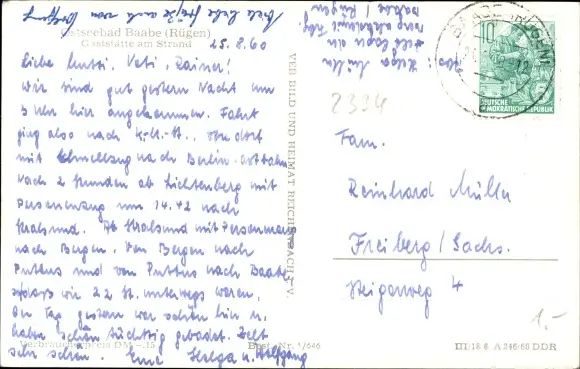 Viele liebe Grüße auch von Wolfgang
Ostseebad Baabe (Rügen)
Gaststätte am Strand
25.8.60
Liebe Mutti, Vati, Rainer!
Wir sind gut gestern Nacht um
3 Uhr hier angekommen. Fahrt
ging also nach K.-M.-St., von dort
mit Schnellzug nach Berlin-Ostbahn.
Nach 2 Stunden ab Lichtenberg mit
Personenzug um 14.42 nach
Stralsund. Ab Stralsund mit Personenzug
nach Bergen. Von Bergen nach
Putbus und von Putbus nach Baabe
sodass wir 22 St. unterwegs waren.
Der Tag gestern war schön hier u.
haben schön tüchtig gebadet. Zelt
sehr schön. Eure Helga u. Wolfgang
Verbraucherpreis DM -,15
Best.-Nr. 5/646
VEB BILD UND HEIMAT REICHENBACH I. V.
Abs.: Helga Müller
Baabe / Rügen
BAABE (RÜGEN)
10
DEUTSCHE
DEMOKRATISCHE REPUBLIK
2394
Fam.
Reinhard Müller
Freiberg / Sachs.
Steigerweg 4
1,-
III/18 6 A 246/60 DDR